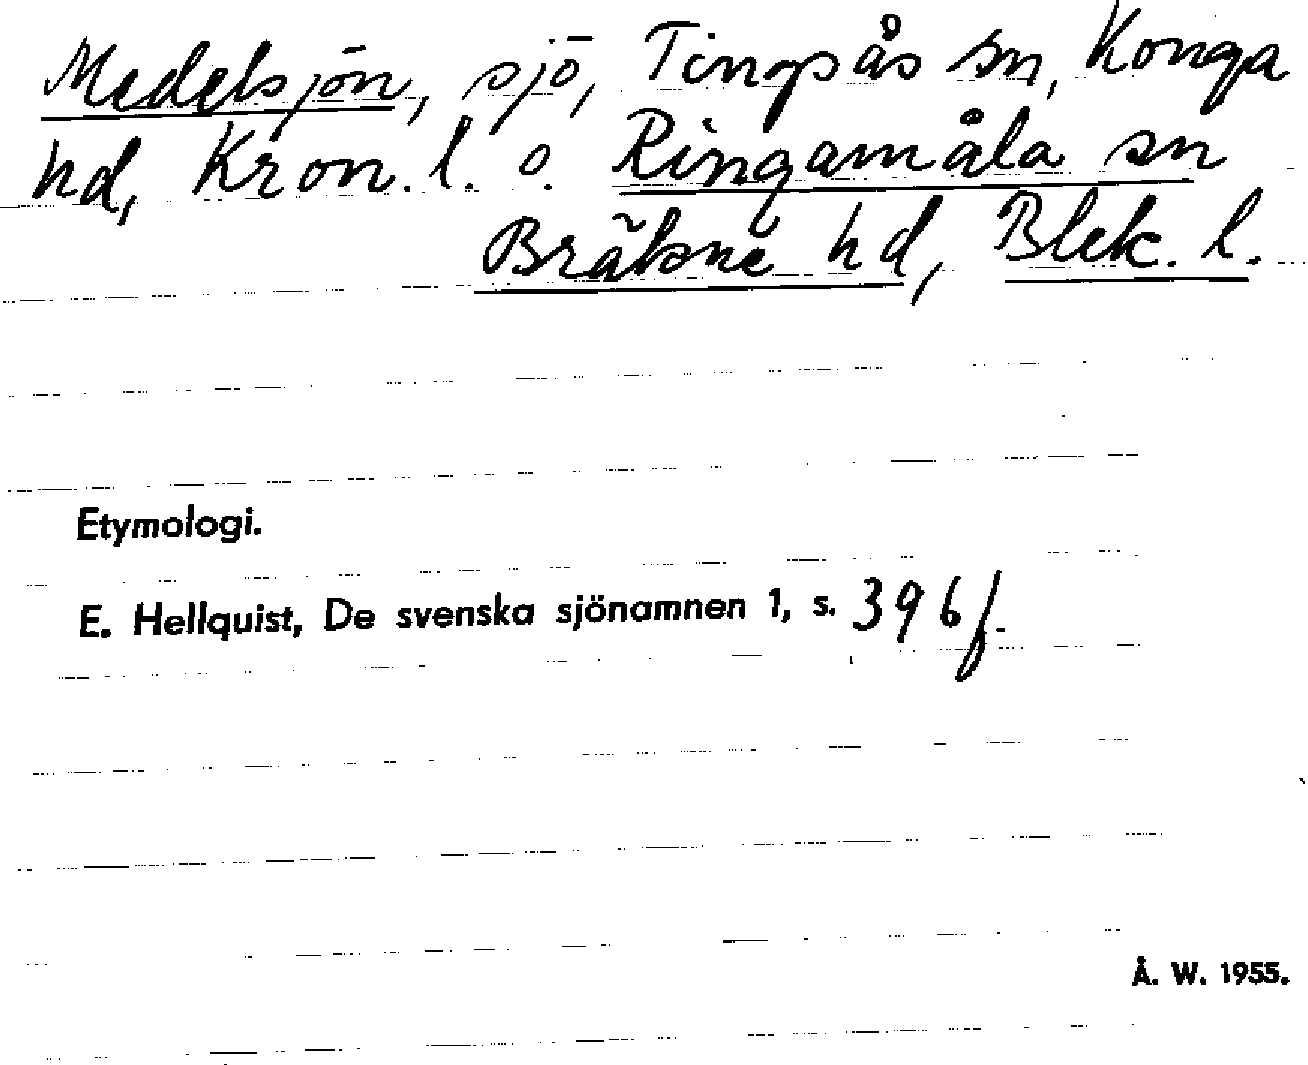 Medelsjön, sjö, Tingsås sn, Konga
hd, Kron. l. o. Ringamåla sn
Bräkne hd, Blek. l.
Etymologi.
E. Hellquist, De svenska sjönamnen 1, s. 396 f.
Å. W. 1955.